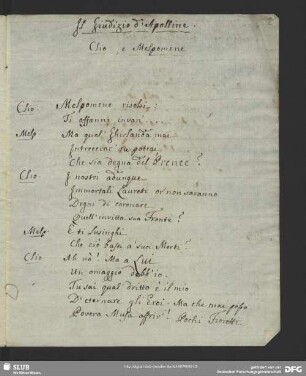 Il Giudizio d'Apolline.
Clio e Melpomene
Clio Melpomene risolvi:
Ti affanni invan
Melp. Ma qual Ghirlanda mai
Intrecciar tu potrai
Che sia degna del Prence?
Clio I nostri adunque
Immortali Laureti or non saranno
Degni di coronare
Quell'invitta sua Fronte?
Melp. E ti lusinghi
Che ciò basti a' suoi Merti?
Clio Ah nò! Ma a Lui
Un omaggio dobb'io.
Tu sai qual dritto è il mio
D'eternare gli Eroi. Ma che mai posso
Povera Musa offrir! Pochi Fioretti.
SLUB
Wir führen Wissen.
DFG
gefördert von der
Deutschen Forschungsgemeinschaft